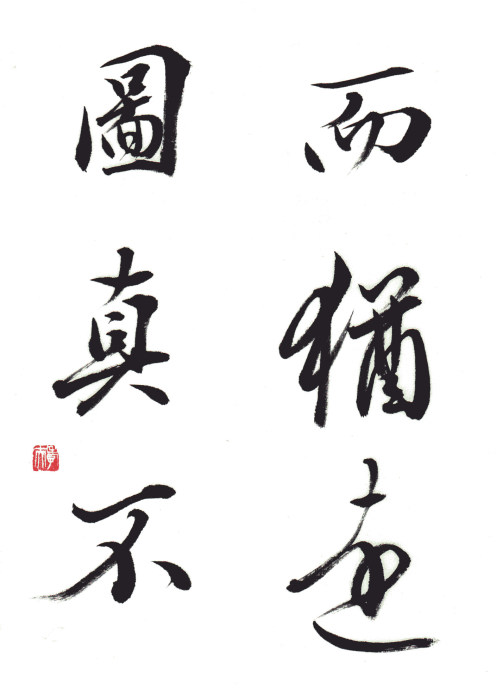 而猶遠
圖真不